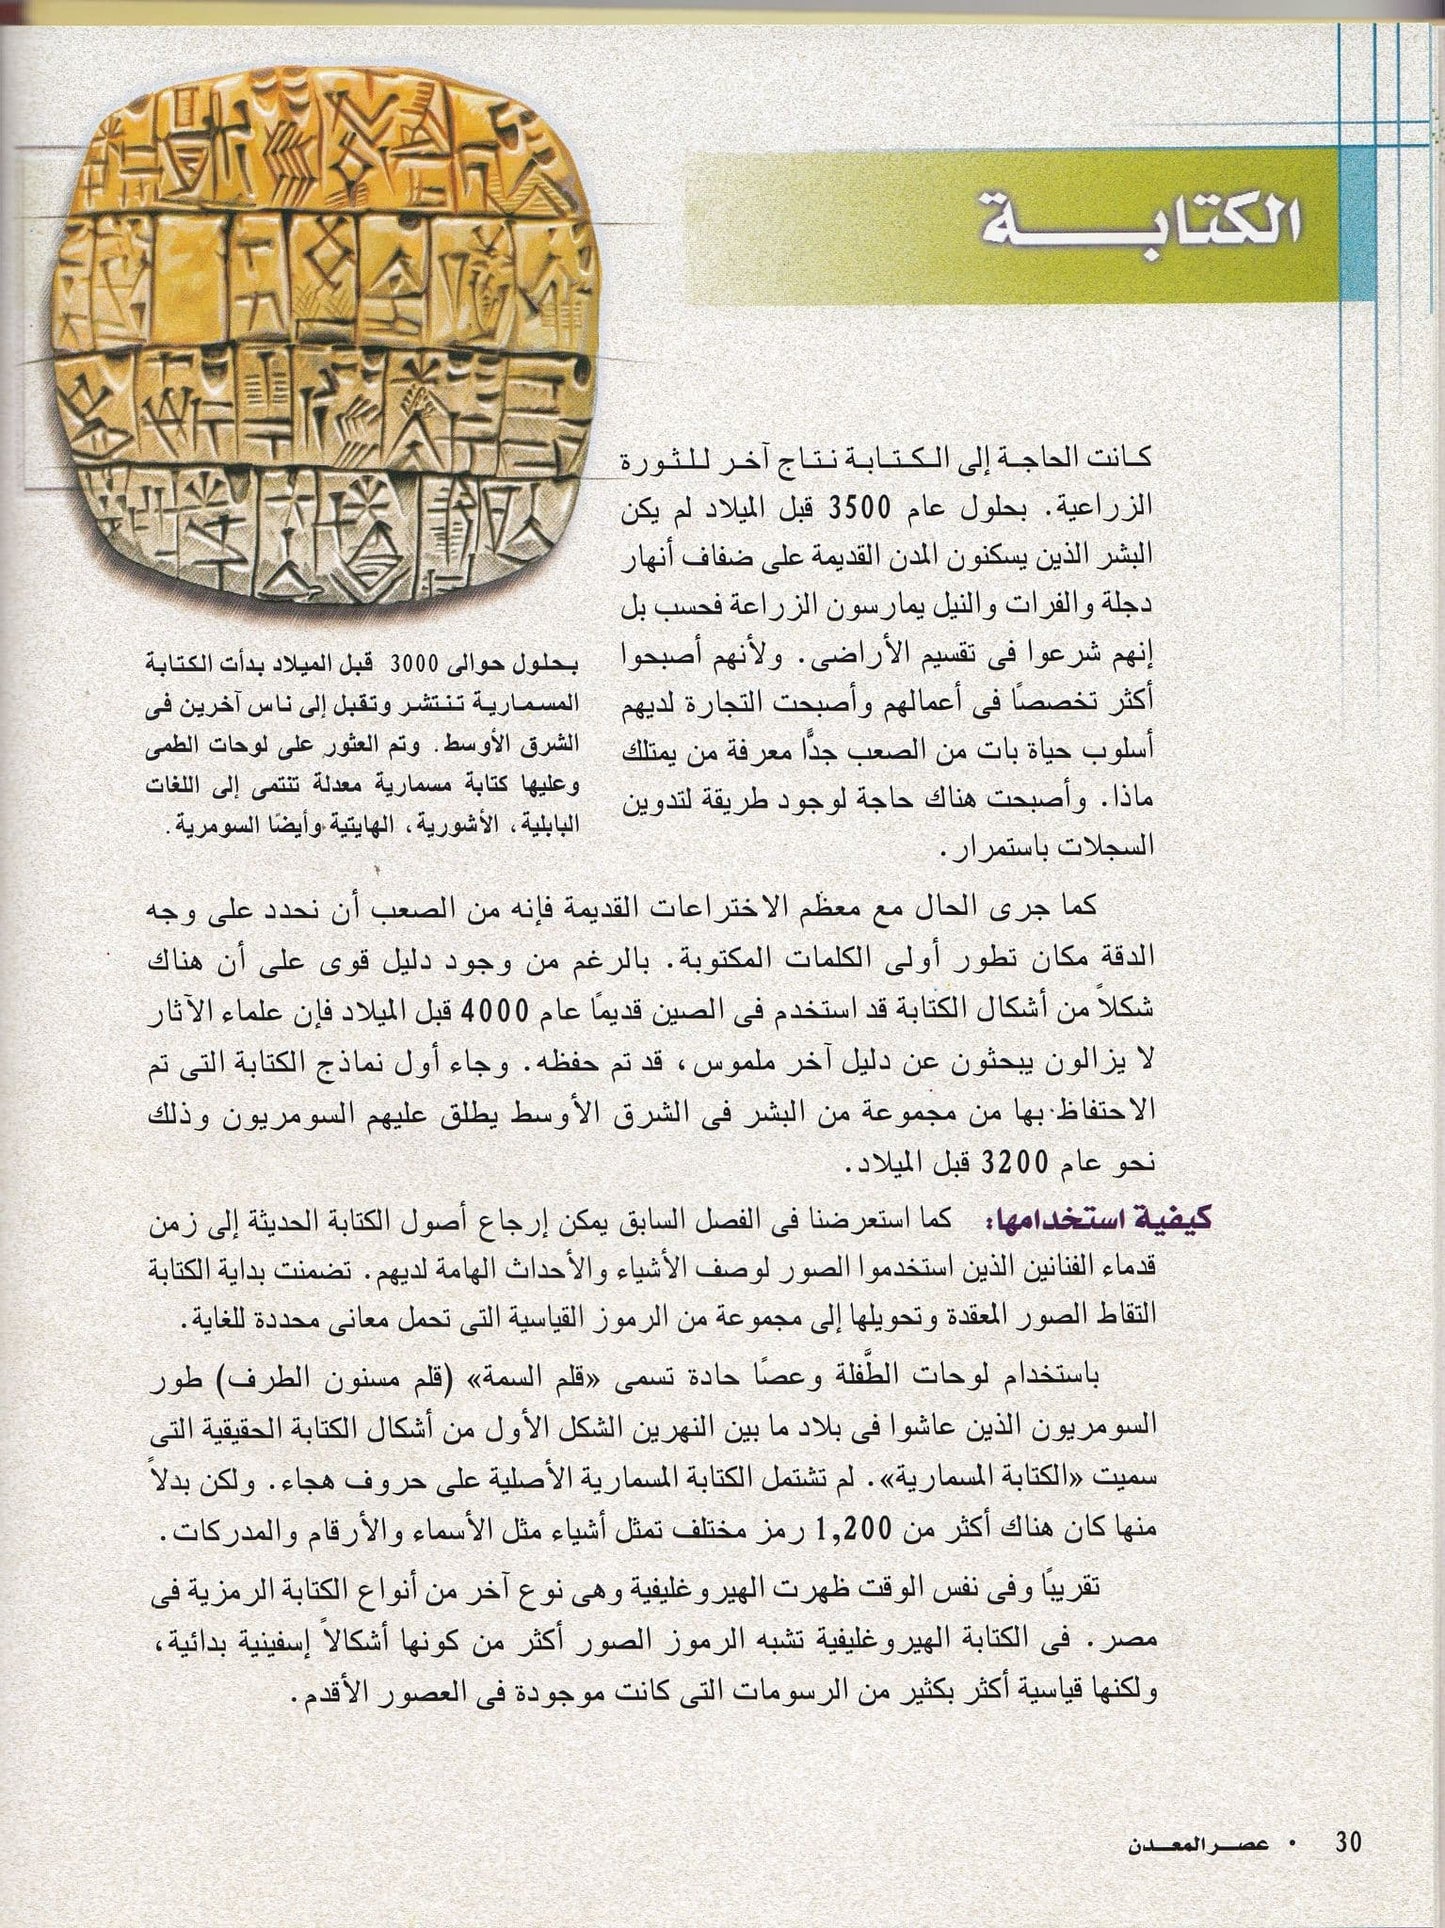 الكتابـــة
كانت الحاجة إلى الكتابة نتاج آخر للثورة
الزراعية. بحلول عام 3500 قبل الميلاد لم يكن
البشر الذين يسكنون المدن القديمة على ضفاف أنهار
دجلة والفرات والنيل يمارسون الزراعة فحسب بل
إنهم شرعوا فى تقسيم الأراضى. ولأنهم أصبحوا
أكثر تخصصًا فى أعمالهم وأصبحت التجارة لديهم
أسلوب حياة بات من الصعب جدًّا معرفة من يمتلك
ماذا. وأصبحت هناك حاجة لوجود طريقة لتدوين
السجلات باستمرار.
بحلول حوالى 3000 قبل الميلاد بدأت الكتابة
المسمارية تنتشر وتقبل إلى ناس آخرين فى
الشرق الأوسط. وتم العثور على لوحات الطمى
وعليها كتابة مسمارية معدلة تنتمى إلى اللغات
البابلية، الأشورية، الهايتية وأيضًا السومرية.
كما جرى الحال مع معظم الاختراعات القديمة فإنه من الصعب أن نحدد على وجه
الدقة مكان تطور أولى الكلمات المكتوبة. بالرغم من وجود دليل قوى على أن هناك
شكلاً من أشكال الكتابة قد استخدم فى الصين قديمًا عام 4000 قبل الميلاد فإن علماء الآثار
لا يزالون يبحثون عن دليل آخر ملموس، قد تم حفظه. وجاء أول نماذج الكتابة التى تم
الاحتفاظ بها من مجموعة من البشر فى الشرق الأوسط يطلق عليهم السومريون وذلك
نحو عام 3200 قبل الميلاد.
كيفية استخدامها: كما استعرضنا فى الفصل السابق يمكن إرجاع أصول الكتابة الحديثة إلى زمن
قدماء الفنانين الذين استخدموا الصور لوصف الأشياء والأحداث الهامة لديهم. تضمنت بداية الكتابة
التقاط الصور المعقدة وتحويلها إلى مجموعة من الرموز القياسية التى تحمل معانى محددة للغاية.
باستخدام لوحات الطَّفلة وعصًا حادة تسمى «قلم السمة» (قلم مسنون الطرف) طور
السومريون الذين عاشوا فى بلاد ما بين النهرين الشكل الأول من أشكال الكتابة الحقيقية التى
سميت «الكتابة المسمارية». لم تشتمل الكتابة المسمارية الأصلية على حروف هجاء. ولكن بدلاً
منها كان هناك أكثر من 1,200 رمز مختلف تمثل أشياء مثل الأسماء والأرقام والمدركات.
تقريبًا وفى نفس الوقت ظهرت الهيروغليفية وهى نوع آخر من أنواع الكتابة الرمزية فى
مصر. فى الكتابة الهيروغليفية تشبه الرموز الصور أكثر من كونها أشكالاً إسفينية بدائية،
ولكنها قياسية أكثر بكثير من الرسومات التى كانت موجودة فى العصور الأقدم.
30 • عصر المعدن